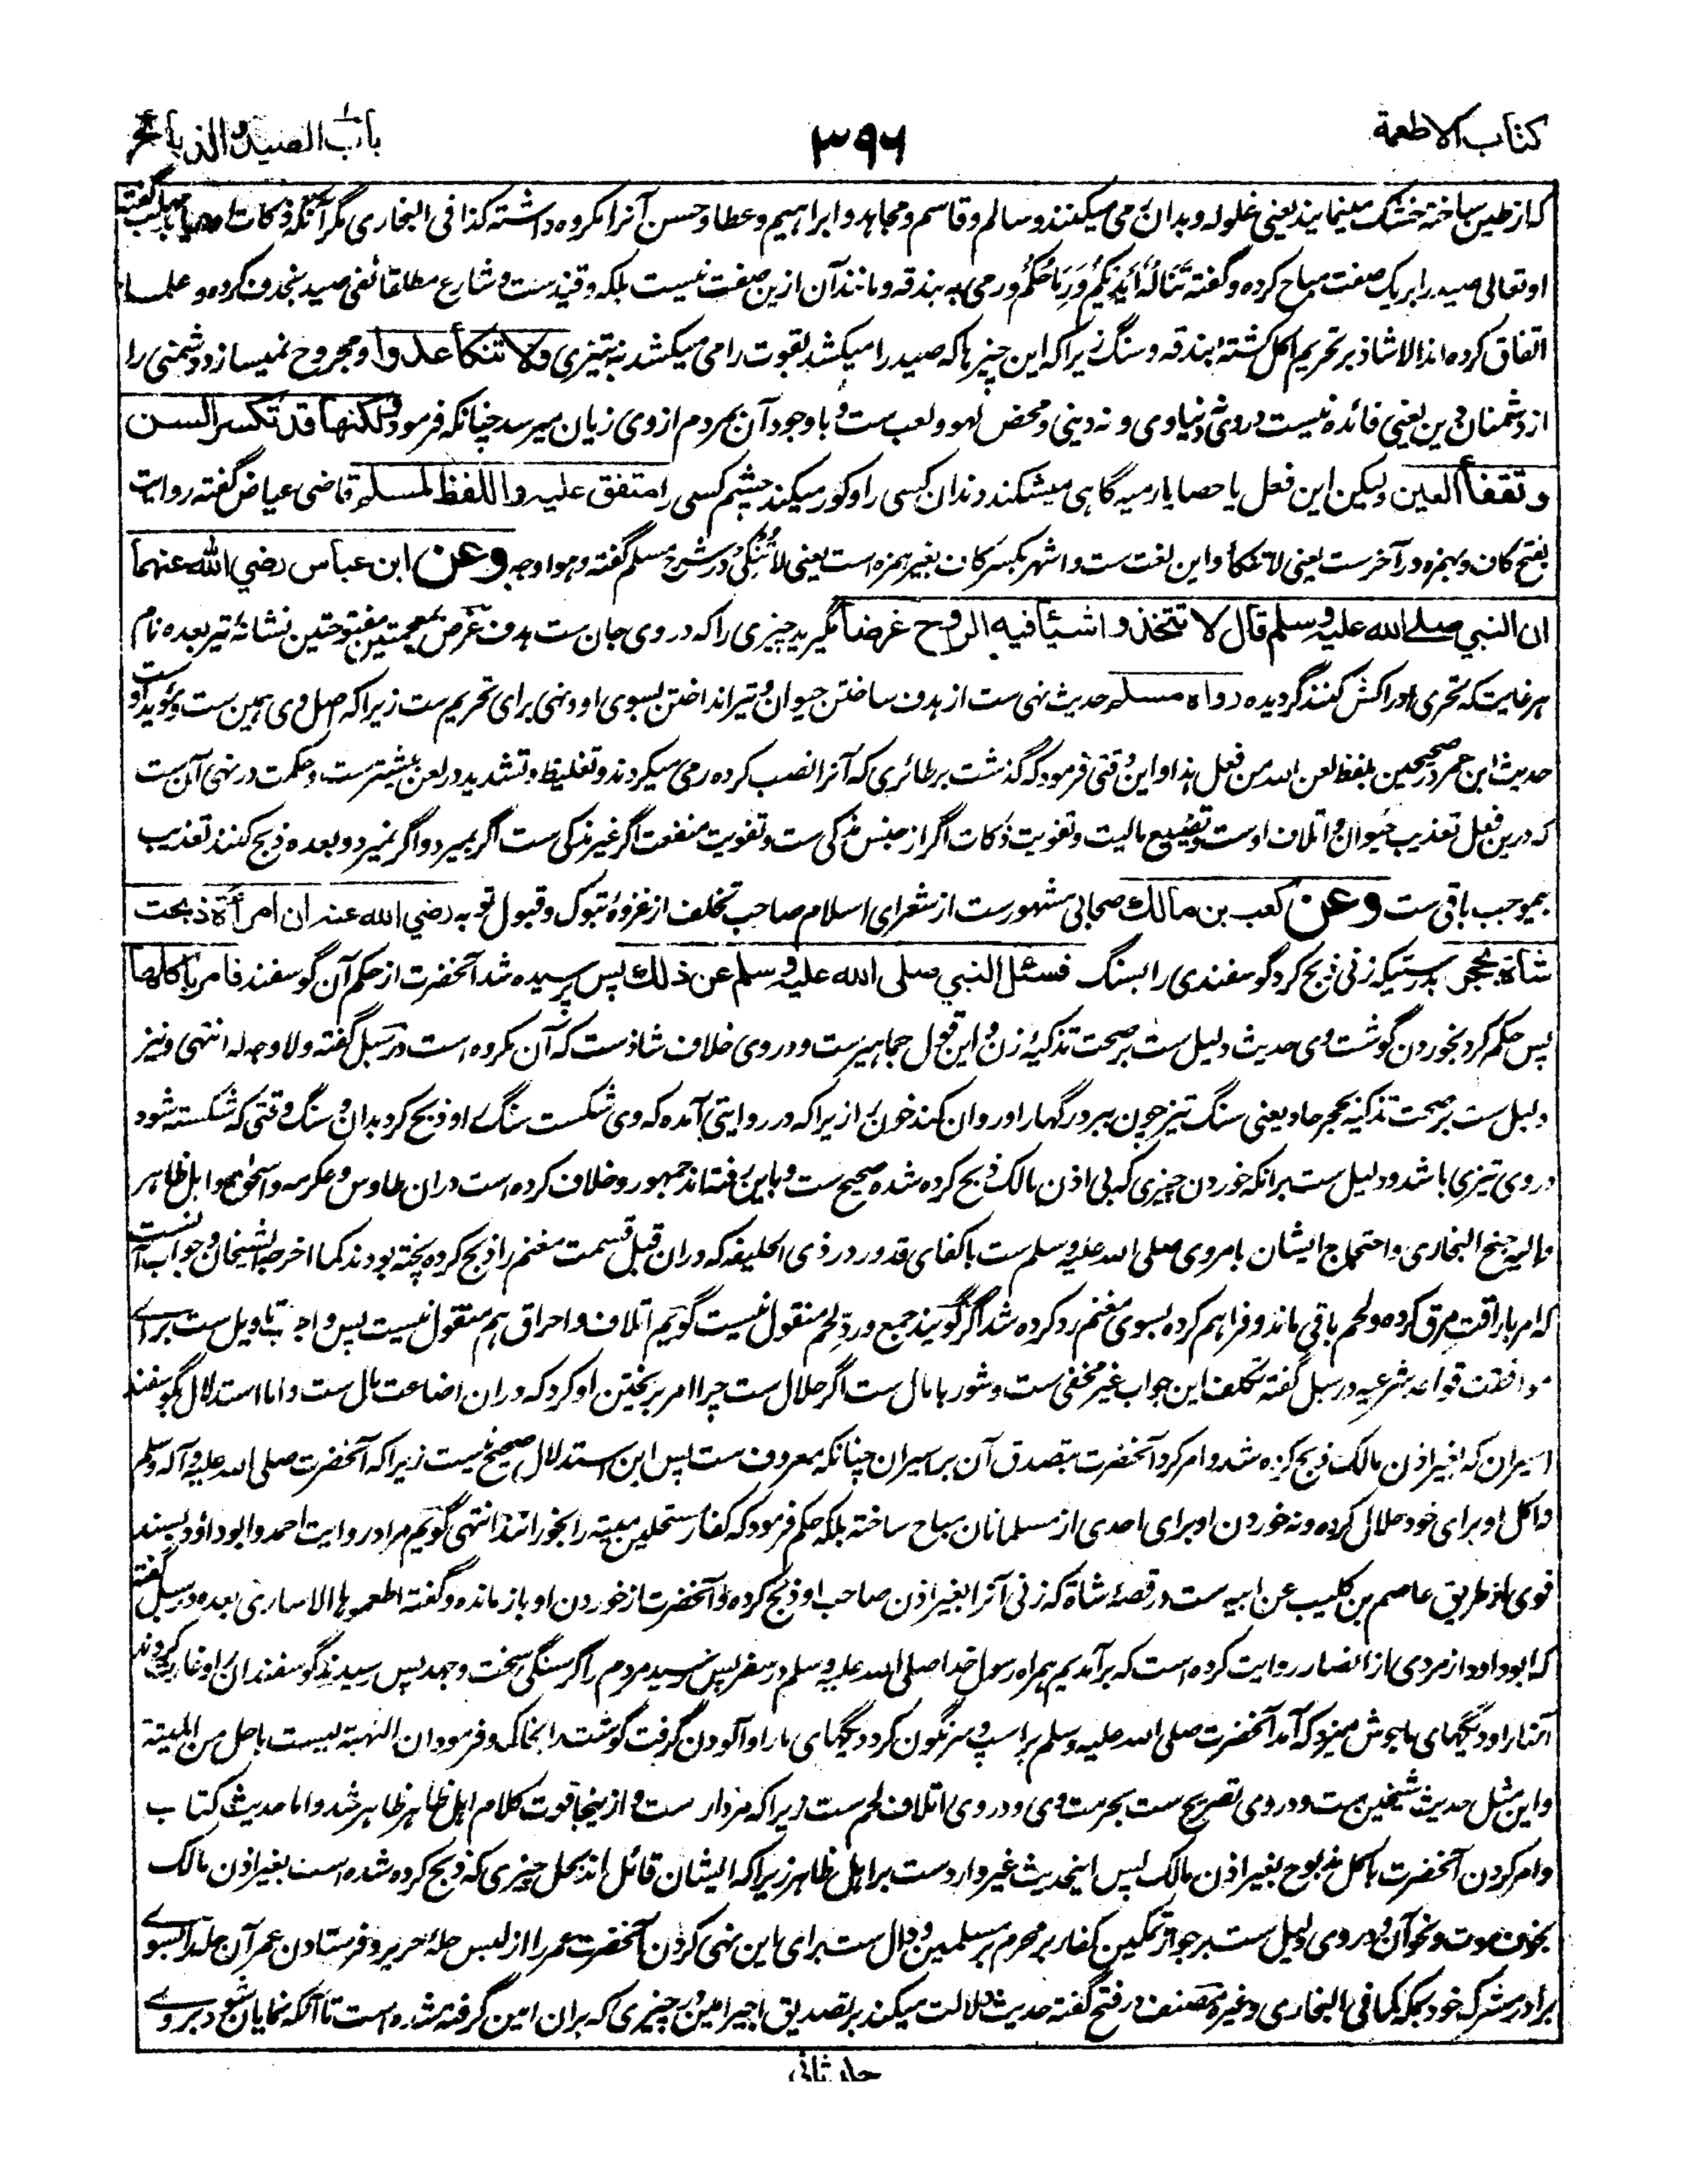 کتاب الاطعمة
۳۹۶
باب الصید والذبائح
که از طین ساخته خشک مینمایند یعنی غلوله و بدان رمی میکنند و سالم و قاسم و مجاهد و ابراهیم و عطا و حسن آنرا مکروه داشته کذا فی البخاری مگر آنکه ذکات
او تعالی صید را بر یک صفت مباح کرده و گفته تَنَالُهُ أَیْدِیْکُمْ وَرِمَاحُکُمْ و رمی به بندقه و مانند آن ازین صفت نیست بلکه وقیذ ست و شارع مطلقا نفی صید بخذف کرده و علما
اتفاق کرده اند الا شاذ بر تحریم اکل کشته بندقه و سنگ زیرا که این چیزها که صید را میکشد بقوت رامی میکشد نه بتیزی ولا تنکأ عدوا و مجروح نمیسازد دشمنی را
از دشمنان دین یعنی فائده نیست در وی دنیاوی و نه دینی و محض لهو و لعب ست و با وجود آن بمردم از وی زیان میرسد چنانکه فرمود ولکنها قد تکسر السن
وتفقأ العین ولیکن این فعل یا حصا یا رمیه گاهی میشکند دندان کسی را و کور میکند چشم کسی را متفق علیه واللفظ لمسلم قاضی عیاض گفته روایت
بفتح کاف و بهمزه در آخر ست یعنی لا تنکأ و این لغت ست و اشهر بکسر کاف بغیر همزه است یعنی لا تنکی در شرح مسلم گفته و هو اوجه وعن ابن عباس رضي الله عنهما
ان النبي صلے الله علیه وسلم قال لا تتخذوا شیئا فیه الروح غرضا مگیرید چیزی را که در وی جان ست هدف غرض بمعجمتین مفتوحتین نشانهٔ تیر بعده نام
هر غایت که تحری ادراکش کنند گردیده رواه مسلم حدیث نهی ست از هدف ساختن حیوان و تیر انداختن بسوی او و نهی برای تحریم ست زیرا که اصل وی همین ست و مؤید او ست
حدیث ابن عمر در صحیحین بلفظ لعن الله من فعل هذا و این وقتی فرمود که گذشت بر طائری که آنرا نصب کرده رمی میکردند و تغلیظ و تشدید در لعن بیشتر ست و حکمت در نهی آن ست
که درین فعل تعذیب حیوان و اتلاف او ست و تضییع مالیت و تفویت ذکات اگر از جنس مذکی ست و تفویت منفعت اگر غیر مذکی ست اگر بمیرد و اگر نمیرد و بعده ذبح کنند تعذیب
بیموجب باقی ست وعن کعب بن مالك صحابی مشهور ست از شعرای اسلام صاحب تخلف از غزوهٔ تبوک و قبول توبه رضي الله عنه ان امرأة ذبحت
شاة بحجر بدرستیکه زنی ذبح کرد گوسفندی را بسنگ فسئل النبي صلی الله علیه وسلم عن ذلك پس پرسیده شد آنحضرت از حکم آن گوسفند فامر باکلها
پس حکم کرد بخوردن گوشت وی حدیث دلیل ست بر صحت تذکیهٔ زن و این قول جماهیر ست و در وی خلاف شاذ ست که آن مکروه است در سبل گفته ولا وجه له انتهی و نیز
دلیل ست بر صحت تذکیه بحجر حاد یعنی سنگ تیز چون ببرد رگها را و روان کند خون را زیرا که در روایتی آمده که وی شکست سنگے را و ذبح کرد بدان و سنگ وقتی که شکسته شود
در وی تیزی باشد و دلیل ست بر آنکه خوردن چیزی که بی اذن مالک ذبح کرده شده صحیح ست و باین رفته اند جمهور و خلاف کرده است دران طاوس و عکرمه و اسحق و هو اهل ظاهر
والیه جنح البخاری و احتجاج ایشان بامر وی صلی الله علیه وسلم ست باکفای قدور در ذی الحلیفه که دران قبل قسمت مغنم را ذبح کرده پخته بودند کما اخرجه الشیخان و جواب آنست
که امر باراقت مرق کرده و لحم باقی ماند و فراهم کرده بسوی مغنم رد کرده شد اگر گویند جمع و رد لحم منقول نیست گویم اتلاف و احراق هم منقول نیست پس واجب تاویل ست برای
موافقت قواعد شرعیه در سبل گفته تکلف این جواب غیر مخفی ست و شوربا مال ست اگر حلال ست چرا امر بریختن او کرد که دران اضاعت مال ست و اما استدلال بگوسفند
اسیران که بغیر اذن مالک ذبح کرده شد و امر کرد آنحضرت بتصدق آن بر اسیران چنانکه معروف ست پس این استدلال صحیح نیست زیرا که آنحضرت صلی الله علیه وآله وسلم
نه اکل او برای خود حلال کرده و نه خوردن او برای احدی از مسلمانان مباح ساخته بلکه حکم فرمود که کفار مستحلین میته را بخورانند انتهی گویم مراد روایت احمد و ابو داؤد بسند
قوی از طریق عاصم بن کلیب عن ابیه ست در قصهٔ شاة که زنی آنرا بغیر اذن صاحب او ذبح کرده و آنحضرت از خوردن او باز مانده و گفته اطعموها الاساری بعده در سبل گفته
که ابو داود از مردی از انصار روایت کرده است که برآمدیم همراه رسول خدا صلی الله علیه وسلم در سفر پس رسید مردم را گرسنگی سخت و جهد پس رسیدند گوسفندان را و غارت کردند
آنها را و دیگهای ما جوش میزد که آمد آنحضرت صلی الله علیه وسلم بر اسپ و سرنگون کرد دیگهای ما را و آلودن گرفت گوشت را بخاک و فرمود ان النهبة لیست باحل من المیتة
و این مثل حدیث شیخین ست و در وی تصریح ست بحرمت وی و در وی اتلاف لحم ست زیرا که مردار ست و ازینجا قوت کلام اهل ظاهر ظاهر شد و اما حدیث کتاب
و امر کردن آنحضرت باکل مذبوح بغیر اذن مالک پس اینحدیث غیر وارد ست بر اهل ظاهر زیرا که ایشان قائل اند بحل چیزی که ذبح کرده شده است بغیر اذن مالک
بخوف موت و نحو آن و در وی دلیل ست بر جواز تمکین کفار بر محرم بر مسلمین و دال ست برای این نهی کردن آنحضرت عمر را از لبس حلهٔ حریر و فرستادن عمر آن حله را بسوی
برادر مشرک خود بمکه کما فی البخاری و غیره مصنف در فتح گفته حدیث دلالت میکند بر تصدیق اجیر امین در چیزی که بران امین گرفته شده است تا آنکه نمایان شود بر وے
جلد ثانی